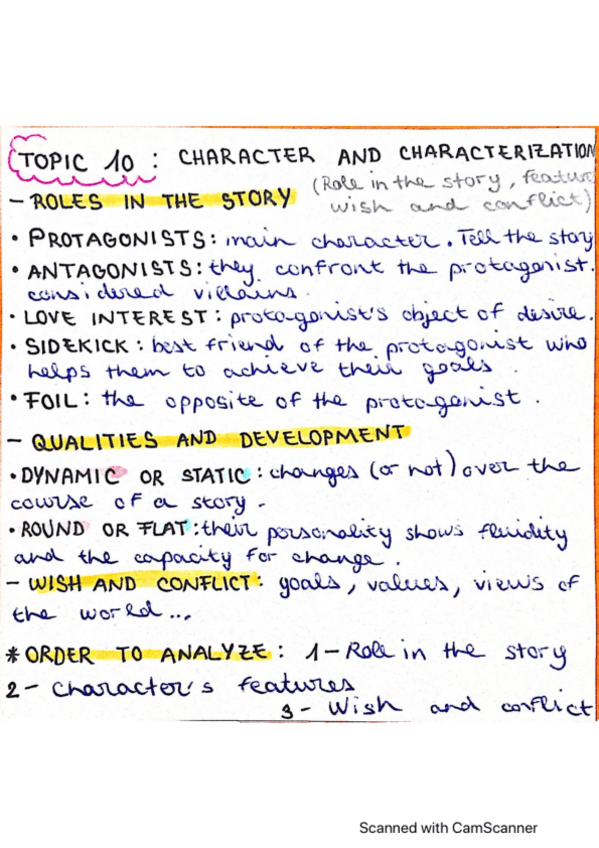 TOPIC 10 : CHARACTER AND CHARACTERIZATION
(Role in the story, feature
- ROLES IN THE STORY
wish and conflict)
• PROTAGONISTS: main character. Tell the story
• ANTAGONISTS: they confront the protagonist.
considered villains.
• LOVE INTEREST: protagonist's object of desire.
• SIDEKICK: best friend of the protagonist who
helps them to achieve their goals.
• FOIL: the opposite of the protagonist.
- QUALITIES AND DEVELOPMENT
• DYNAMIC OR STATIC: changes (or not) over the
course of a story.
• ROUND OR FLAT: their personality shows fluidity
and the capacity for change.
- WISH AND CONFLICT: goals, values, views of
the world...
* ORDER TO ANALYZE: 1- Role in the story
2- Character's features
3- Wish and conflict
Scanned with CamScanner